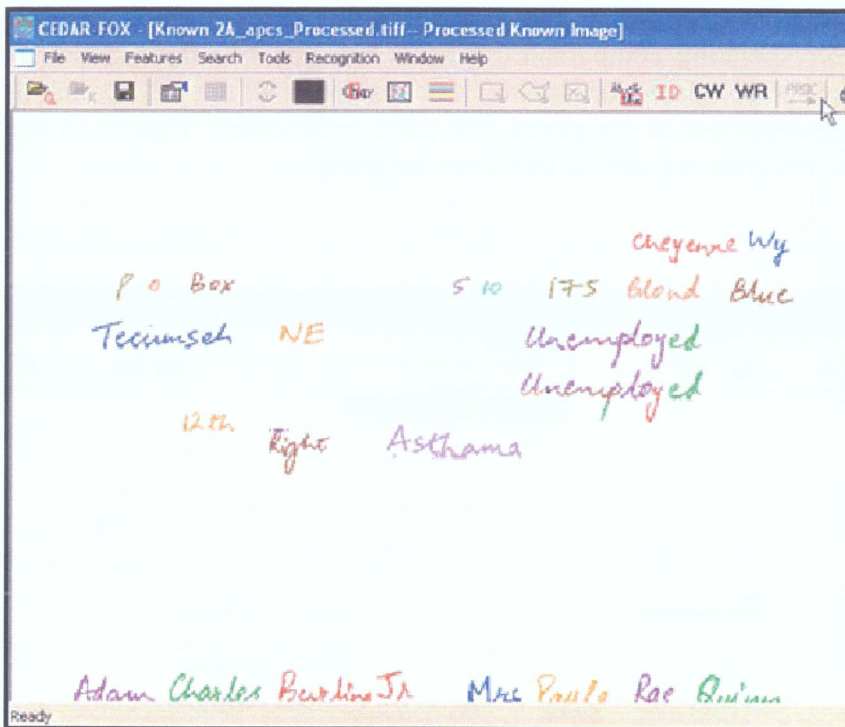 CEDAR-FOX - [Known 2A_apcs_Processed.tiff-- Processed Known Image]
File View Features Search Tools Recognition Window Help
ID CW WR
Cheyenne Wy
P O Box 5 10 175 Blond Blue
Tecumseh NE Unemployed
Unemployed
12th
Right Asthama
Adam Charles Jr Rae Quinn
Ready